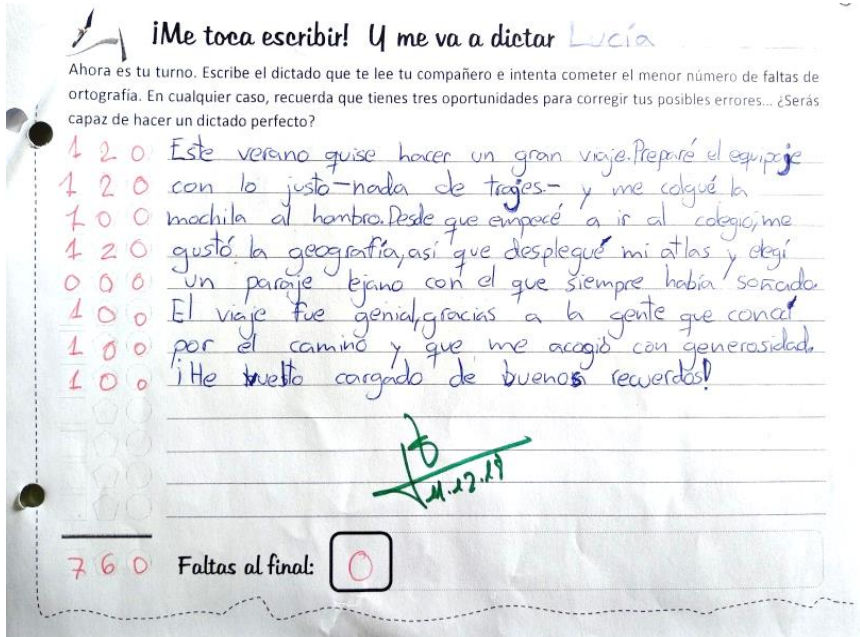 ¡Me toca escribir! Y me va a dictar Lucía
Ahora es tu turno. Escribe el dictado que te lee tu compañero e intenta cometer el menor número de faltas de
ortografía. En cualquier caso, recuerda que tienes tres oportunidades para corregir tus posibles errores... ¿Serás
capaz de hacer un dictado perfecto?
1 2 0 Este verano quise hacer un gran viaje. Preparé el equipaje
1 2 0 con lo justo -nada de trajes- y me colgué la
1 0 0 mochila al hombro. Desde que empecé a ir al colegio, me
1 2 0 gustó la geografía, así que desplegué mi atlas y elegí
0 0 0 un paraje lejano con el que siempre había soñado.
1 0 0 El viaje fue genial, gracias a la gente que conocí
1 0 0 por el camino y que me acogió con generosidad.
1 0 0 ¡He vuelto cargado de buenos recuerdos!
11.12.19
7 6 0 Faltas al final: 0